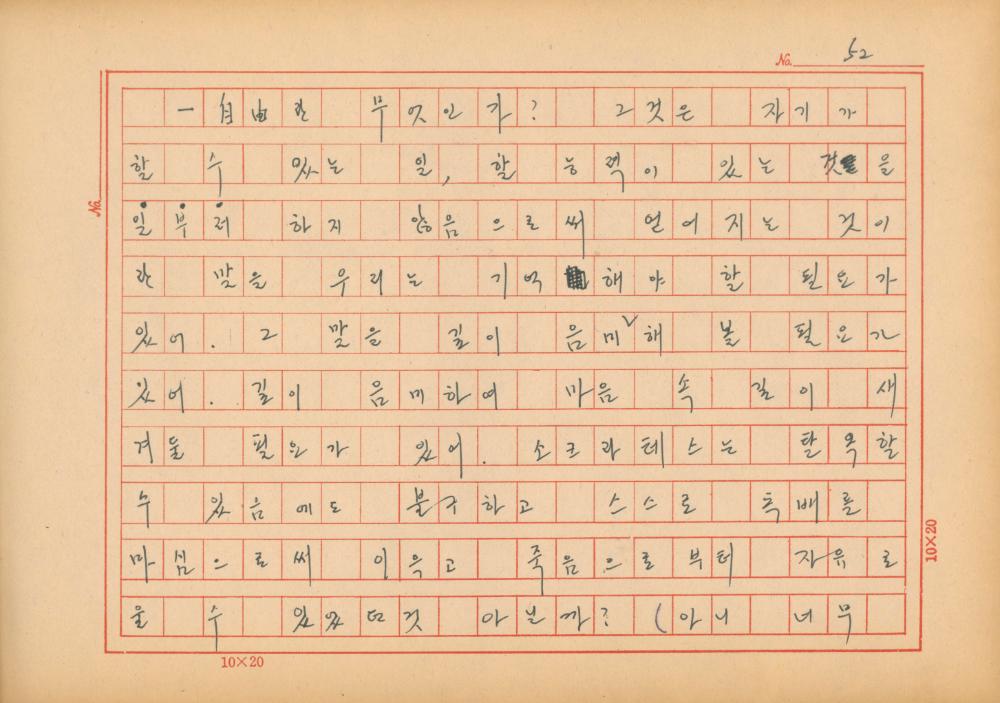 No. 52
一自由란 무엇인가? 그것은 자기가
할 수 있는 일, 할 능력이 있는 것을
일부러 하지 않음으로써 얻어지는 것이
란 말을 우리는 기억해야 할 필요가
있어. 그 말을 깊이 음미해 볼 필요가
있어. 깊이 음미하여 마음 속 깊이 새
겨둘 필요가 있어. 소크라테스는 탈옥할
수 있음에도 불구하고 스스로 독배를
마심으로써 이윽고 죽음으로부터 자유로
울 수 있었던것 아닐까? (아니 너무
No.
10×20
10×20